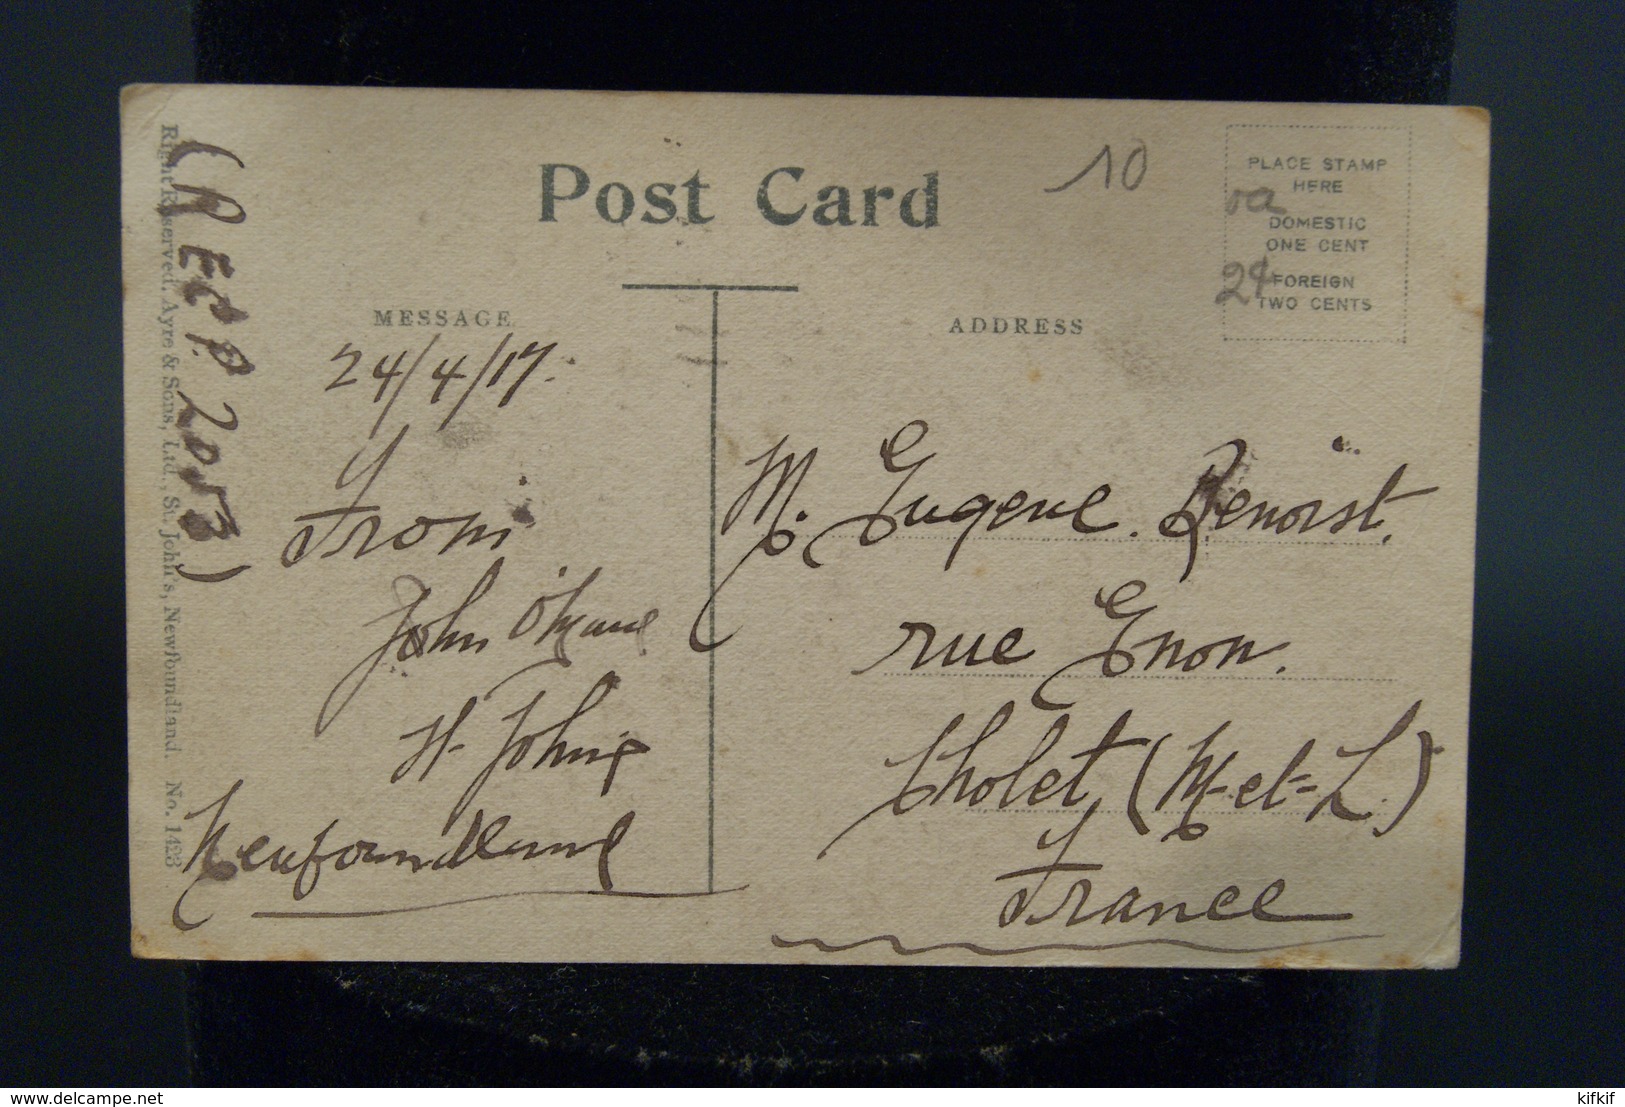 Post Card
10
PLACE STAMP
HERE
DOMESTIC
ONE CENT
FOREIGN
TWO CENTS
MESSAGE
ADDRESS
24/4/17.
From
John
St. John's
Newfoundland
M. Eugene Benoist.
rue Enon.
Cholet (M-et-L.)
France
Right Reserved, Ayre & Sons, Ltd., St. John's, Newfoundland. No. 1423
www.delcampe.net
kifkif